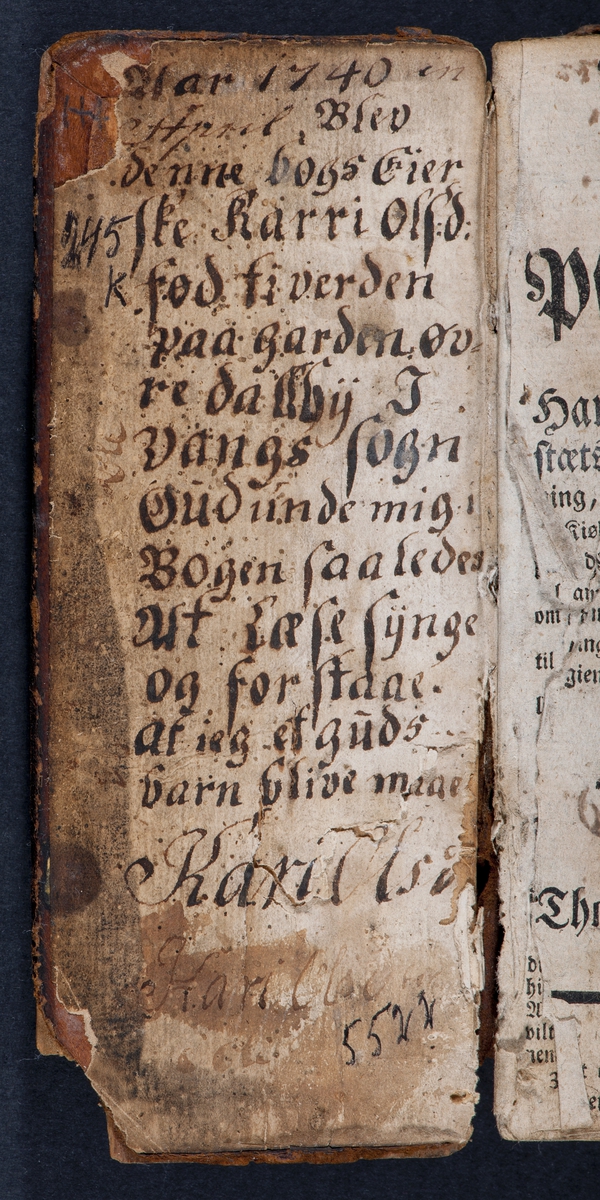 Aar 1740 en
April, Blev
denne bogs Eier
245 ske Karri Olsd:
k fød ti verden
paa garden øv-
re dallbÿ I
Vangs sogn
Gud unde mig
Bogen saaledes
At Læse sÿnge
og forstaae.
at ieg et guds
barn blive maae
Kari Olsd
Kari
5522
P
Har
stæts
ing,
til
gien
Tho
hi
vilt